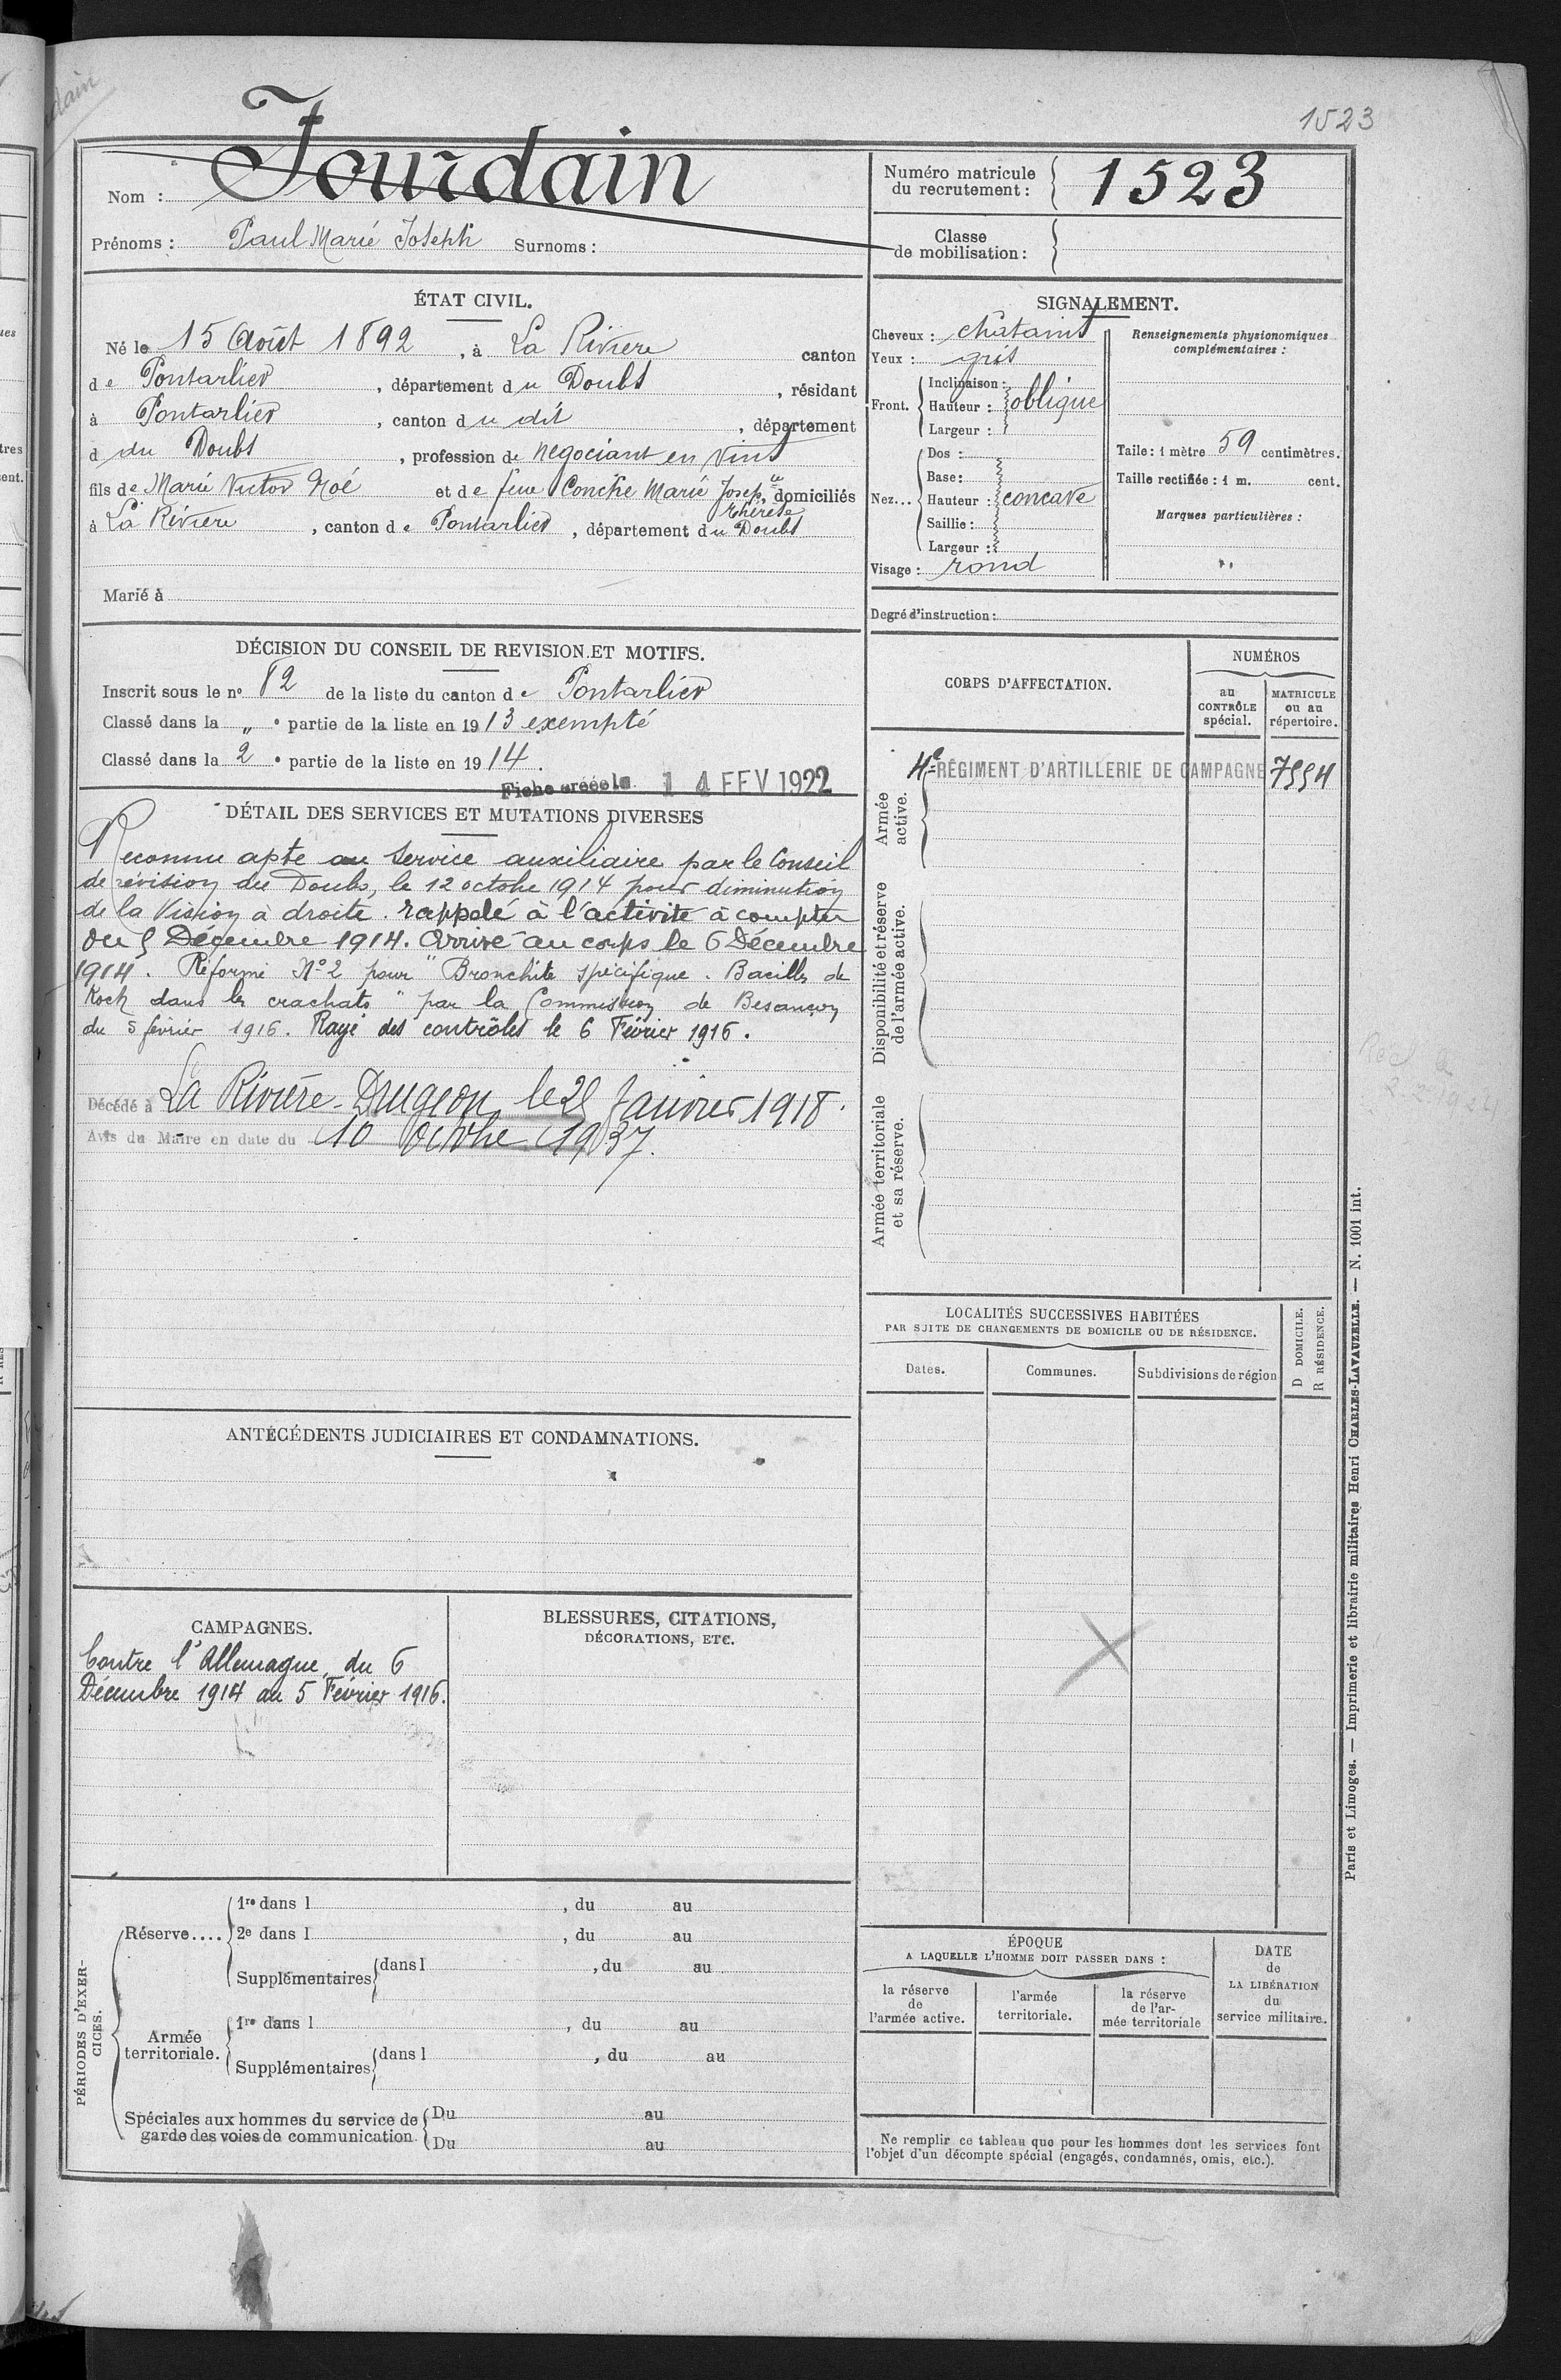 1523
Jourdain
Nom :
Prénoms : Paul Marie Joseph Surnoms :
Numéro matricule du recrutement : 1523
Classe de mobilisation :
ÉTAT CIVIL.
Né le 15 Août 1892, à La Rivière canton
de Pontarlier, département du Doubs, résidant
à Pontarlier, canton du dit, département
d du Doubs, profession de négociant en vins
fils de Marie Victor Noé et de feue Conche Marie Josep.ue Thérèse domiciliés
à La Rivière, canton de Pontarlier, département du Doubs
Marié à
SIGNALEMENT.
Cheveux : châtains
Yeux : gris
Front. Inclinaison : Hauteur : Largeur : oblique
Nez... Dos : Base : Hauteur : Saillie : Largeur : concave
Visage : rond
Renseignements physionomiques complémentaires :
Taile : 1 mètre 59 centimètres.
Taille rectifiée : 1 m. cent.
Marques particulières :
Degré d'instruction :
DÉCISION DU CONSEIL DE REVISION ET MOTIFS.
Inscrit sous le n° 82 de la liste du canton de Pontarlier
Classé dans la " e partie de la liste en 1913 exempté
Classé dans la 2 e partie de la liste en 1914.
Fiche créée le 14 FEV 1922
DÉTAIL DES SERVICES ET MUTATIONS DIVERSES
Reconnu apte au service auxiliaire par le Conseil
de révision du Doubs, le 12 octobre 1914 pour diminution
de la Vision à droite. rappelé à l'activité à compter
du 5 Décembre 1914. Arrivé au corps le 6 Décembre
1914. Réformé N° 2 pour "Bronchite spécifique. Bacilles de
Koch dans les crachats" par la Commission de Besançon
du 5 février 1916. Rayé des contrôles le 6 Février 1916.
Décédé à La Rivière-Drugeon, le 25 Janvier 1918.
Avis du Maire en date du 10 Octobre 1937.
CORPS D'AFFECTATION.
NUMÉROS
au CONTRÔLE spécial.
MATRICULE ou au répertoire.
Armée active.
4e RÉGIMENT D'ARTILLERIE DE CAMPAGNE 7554
Disponibilité et réserve de l'armée active.
Armée territoriale et sa réserve.
LOCALITÉS SUCCESSIVES HABITÉES
PAR SUITE DE CHANGEMENTS DE DOMICILE OU DE RÉSIDENCE.
Dates.
Communes.
Subdivisions de région
D DOMICILE.
R RÉSIDENCE.
ANTÉCÉDENTS JUDICIAIRES ET CONDAMNATIONS.
CAMPAGNES.
Contre l'Allemagne, du 6
Décembre 1914 au 5 Février 1916.
BLESSURES, CITATIONS,
DÉCORATIONS, ETC.
PÉRIODES D'EXERCICES.
Réserve....
1re dans l , du au
2e dans l , du au
Supplémentaires dans l , du au
Armée territoriale.
1re dans l , du au
Supplémentaires dans l , du au
Spéciales aux hommes du service de garde des voies de communication.
Du au
Du au
ÉPOQUE
A LAQUELLE L'HOMME DOIT PASSER DANS :
la réserve de l'armée active.
l'armée territoriale.
la réserve de l'armée territoriale
DATE de LA LIBÉRATION du service militaire.
Ne remplir ce tableau que pour les hommes dont les services font
l'objet d'un décompte spécial (engagés, condamnés, omis, etc.).
Paris et Limoges. — Imprimerie et librairie militaires Henri CHARLES-LAVAUZELLE. — N. 1001 int.